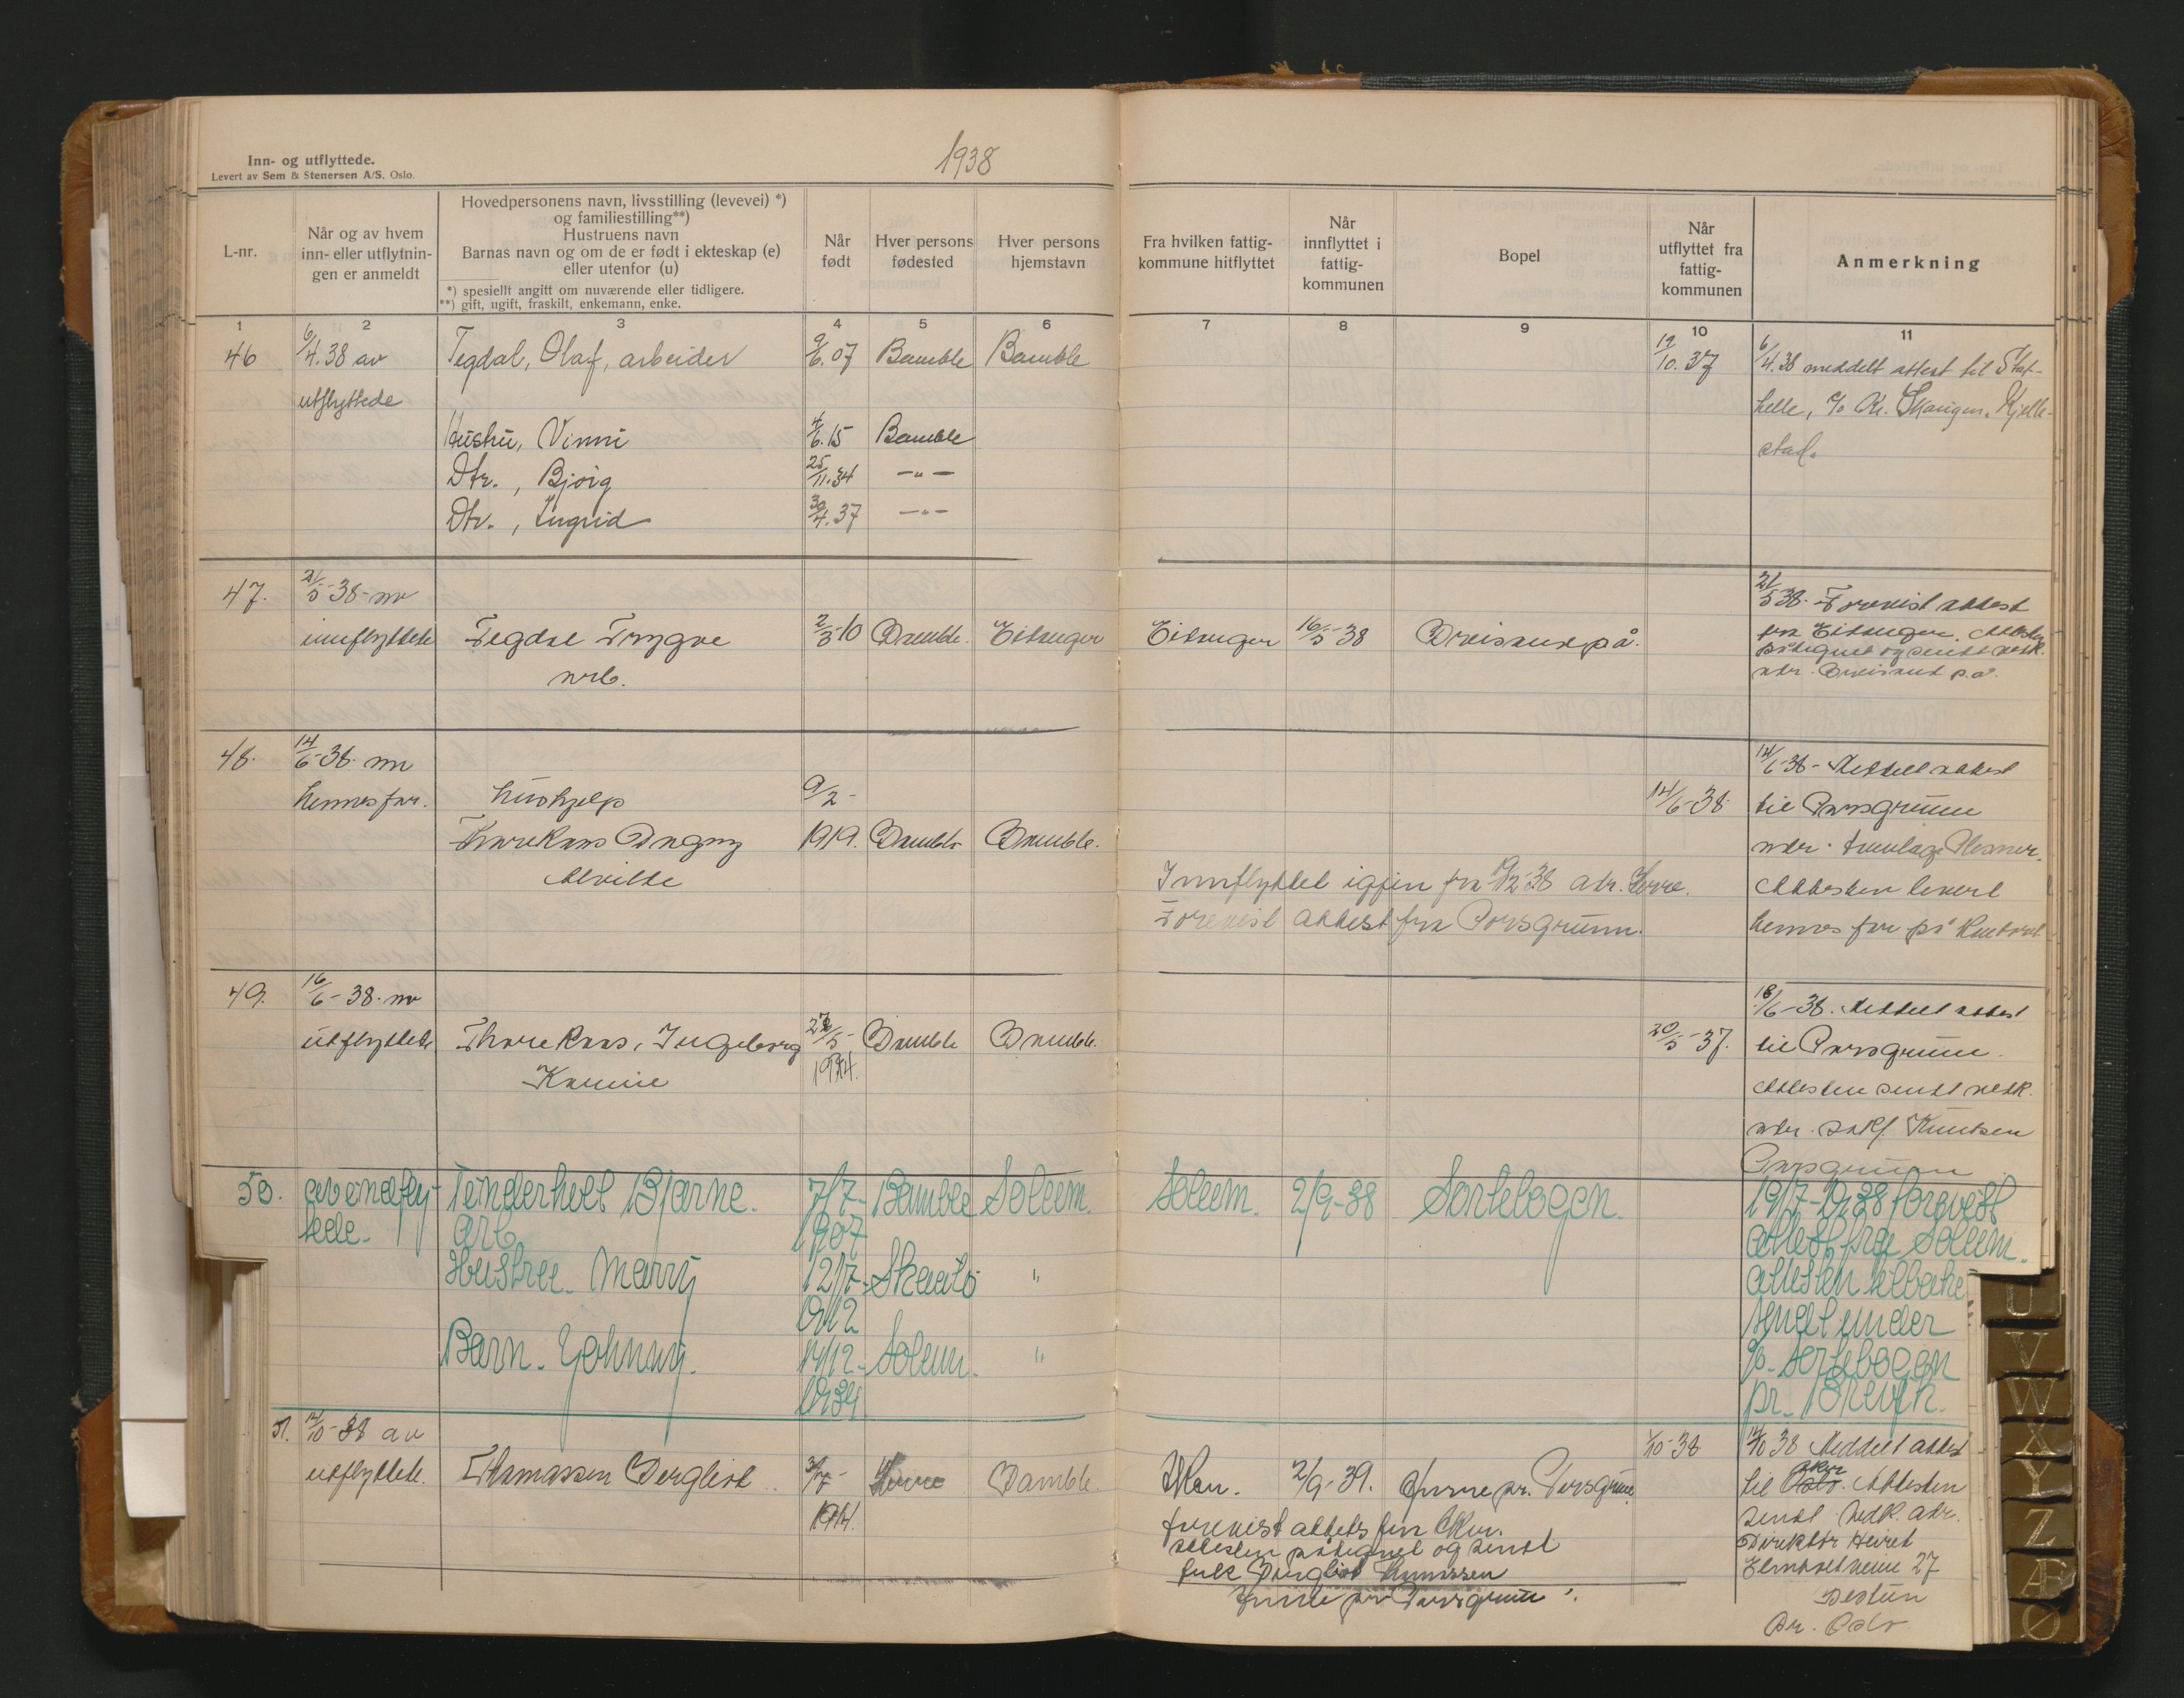 Inn- og utflyttede.
Levert av Sem & Stenersen A/S. Oslo.
1938
L-nr.
Når og av hvem
inn- eller utflytnin-
gen er anmeldt
Hovedpersonens navn, livsstilling (levevei) *)
og familiestilling**)
Hustruens navn
Barnas navn og om de er født i ekteskap (e)
eller utenfor (u)
*) spesiellt angitt om nuværende eller tidligere.
**) gift, ugift, fraskilt, enkemann, enke.
Når
født
Hver persons
fødested
Hver persons
hjemstavn
Fra hvilken fattig-
kommune hitflyttet
Når
innflyttet i
fattig-
kommunen
Bopel
Når
utflyttet fra
fattig-
kommunen
Anmerkning
1 2 3 4 5 6 7 8 9 10 11
46 6/4.38 av Tegdal, Olaf, arbeider 9/6.07 Bamble Bamble 19/10.37 6/4.38 meddelt attest til Stat-
utflyttede helle, c/o Kr. Skaugen, Kjelle-
Hustru, Vinni 4/6.15 Bamble stad.
Dtr., Bjørg 25/11.34 -"-
Dtr., Ingrid 30/4.37 -"-
47. 21/5-38 av 21/5 38. Forevist attest
innflyttede Tegdal Trygve 2/3-10 Bamble. Eidanger Eidanger 16/5-38 Breisand på. fra Eidanger. Attesten
arb. påtegnet og sendt vedk.
adr. Breisand p.å.
48. 14/6-38. av 14/6-38 - Meddelt attest
hennes far. hushjelp 9/2- 14/6-38 til Porsgrunn
Thorekaas Dagny 1919. Bamble Bamble. adr.
Alvilde Innflyttet igjen fra 19/12 38 adr. Herre. Attesten levert
Forevist attest fra Porsgrunn. hennes far på kontoret
49. 16/6-38. av 18/6-38. Meddelt attest
utflyttede Thorekaas, Ingeborg 27/5- Bamble Bamble. 20/5-37. til Porsgrunn.
Kamie 1914. Attesten sendt vedk.
adr. Knutsen
Porsgrunn
50. av innfly- Tinderholt Bjarne. 7/7- Bamble Solum. Solum. 2/9-38 Sortebogen. 19/7-1938 forevist
tede. arb. 1907 attest fra Solum.
Hustru. Marry 12/7- Skaatø " attesten tilbake
1912 sendt under
Barn. Johnny. 14/12- Solum. " c/o. Sortebogen
1934 pr. Brevik.
51. 14/10-38 av 1/10-38 14/10 38 Meddelt attest
utflyttede. Thomassen Bergliot 3/7- Herre Bamble. Aker. 2/9-39. Herre pr. Porsgrunn til Oslo Aker. Attesten
1914. forevist attest fra Aker. sendt vedk. adr.
attesten påtegnet og sendt Direktør Heiret
frk. Bergliot Thomassen 27
Herre pr Porsgrunn. Bestun
pr. Oslo.
U
V
W
X
Y
Z
Æ
Ø